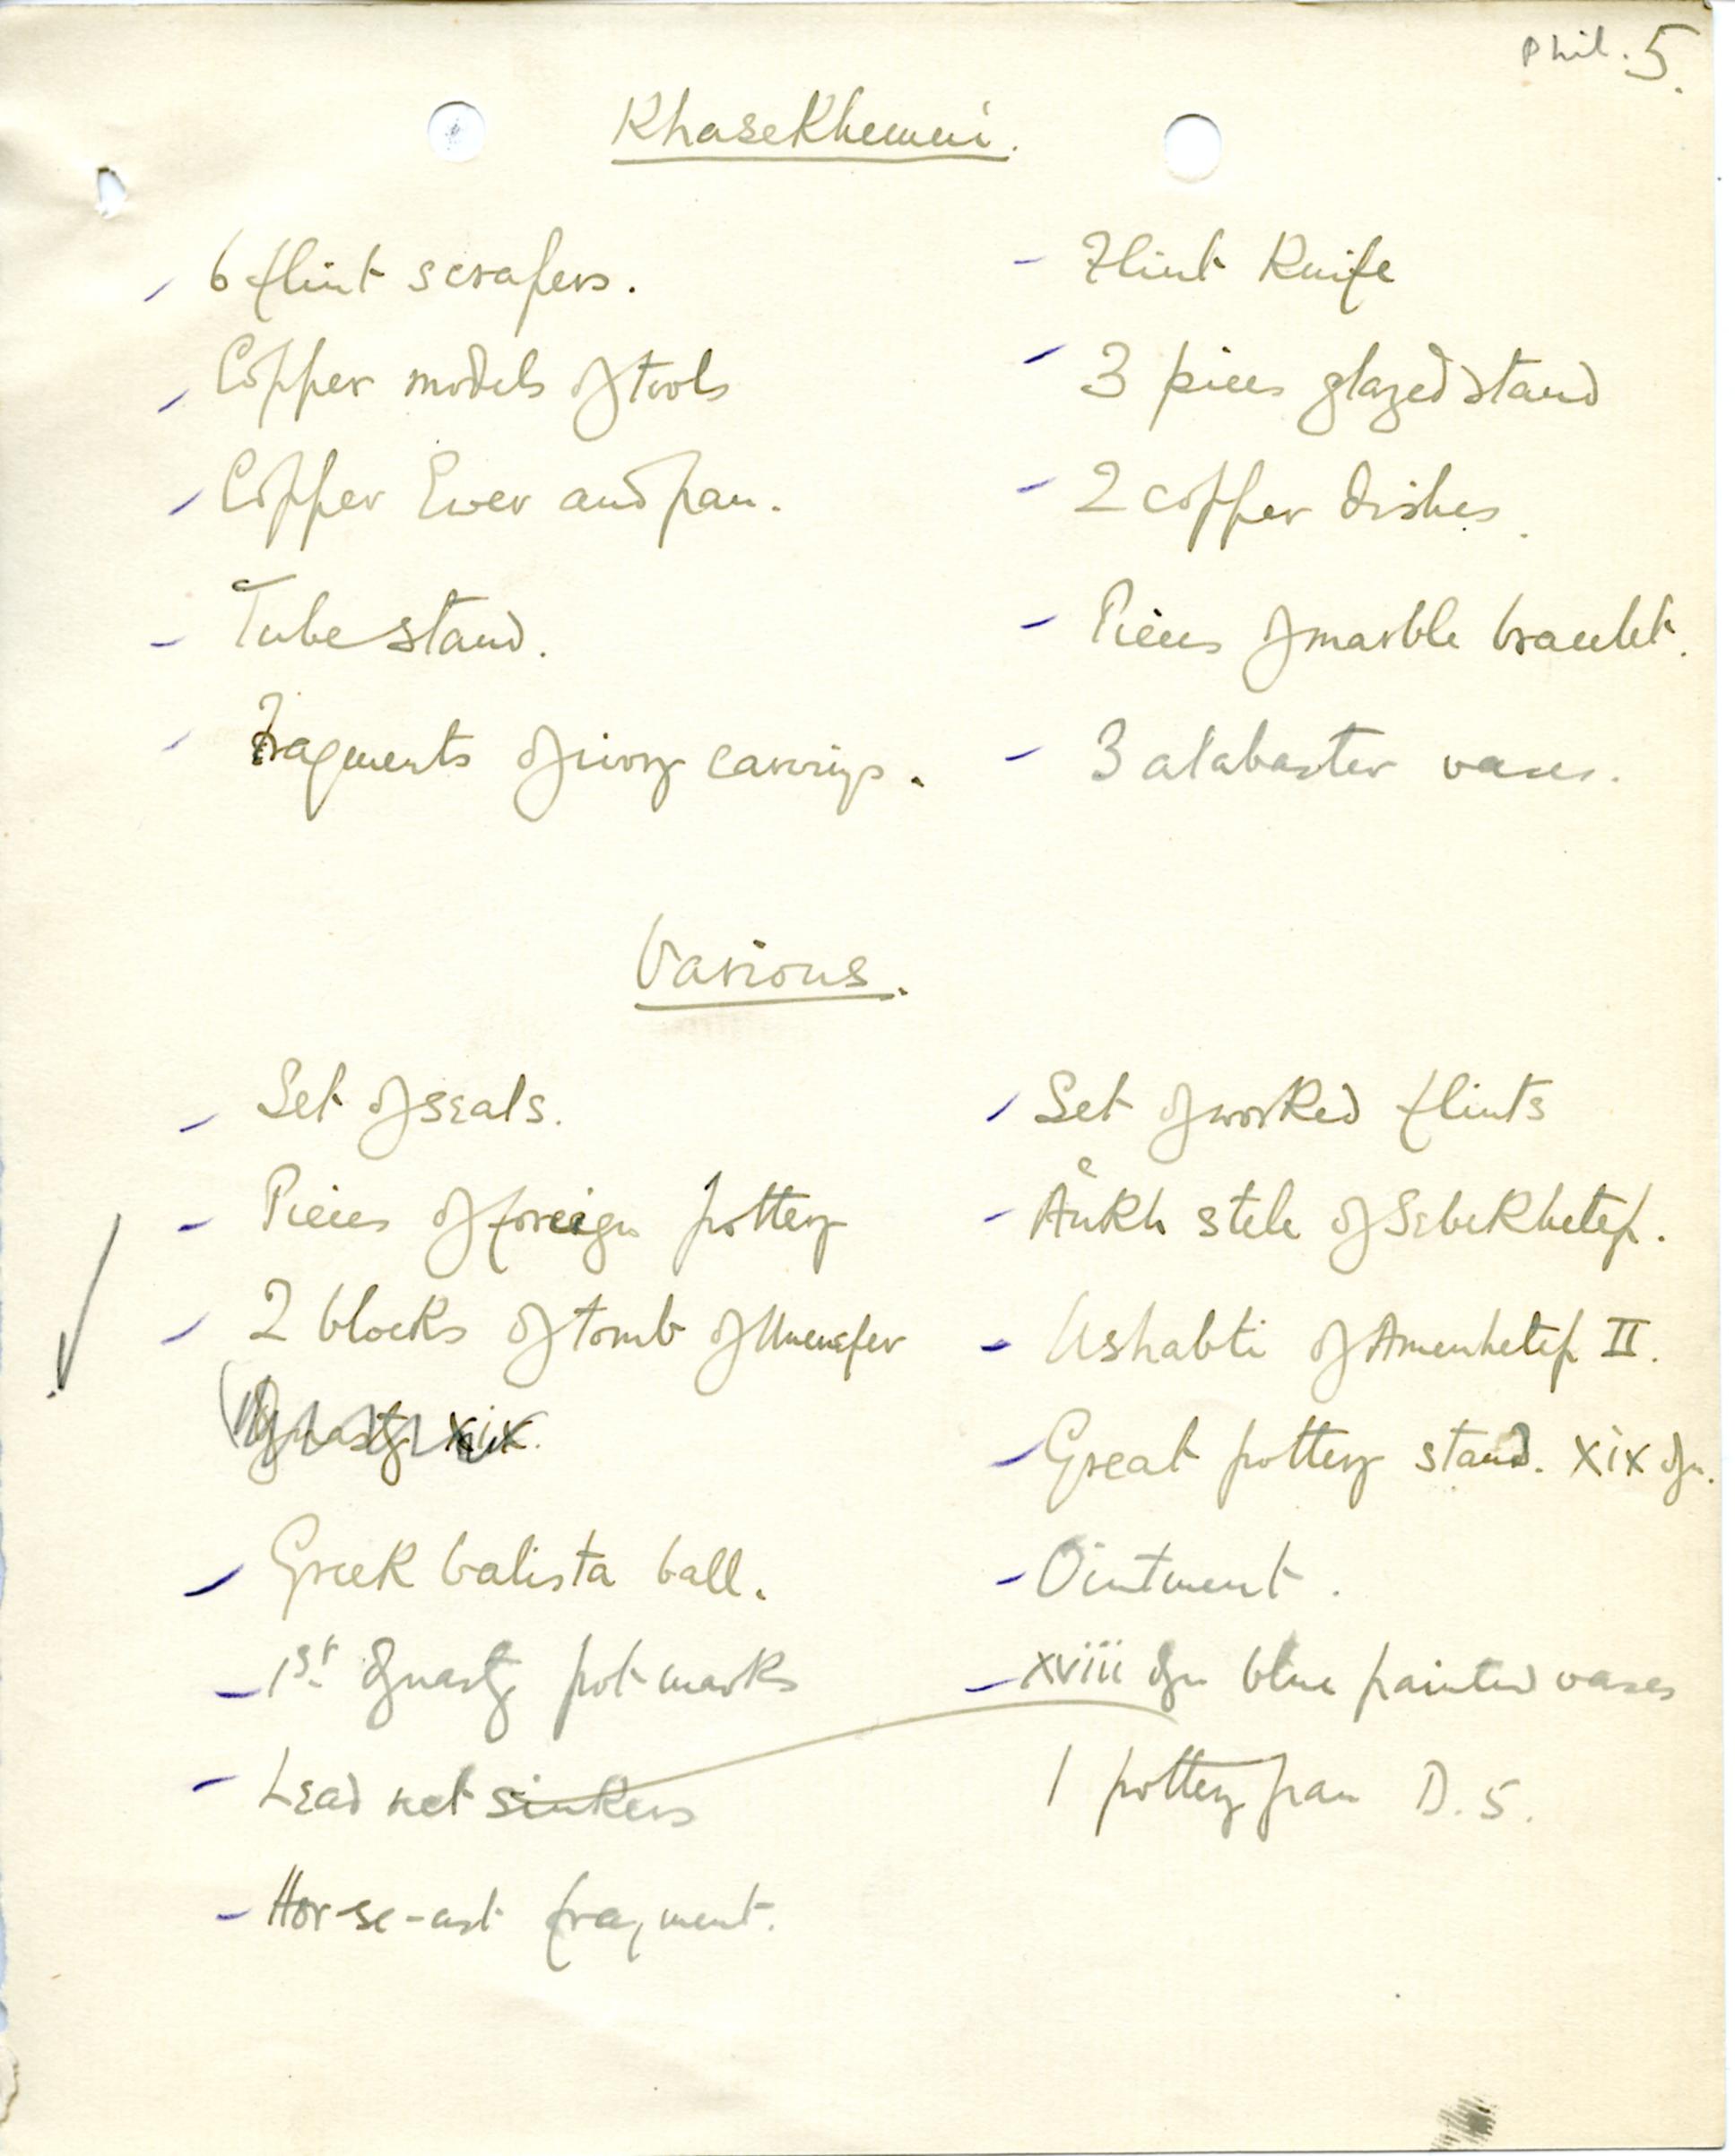 Phil. 5.
Khasekhemui.
6 flint scrapers.
Copper models of tools
Copper Ewer and pan.
Tube stand.
Fragments of ivory carvings.
Flint Knife
3 pieces glazed stand
2 copper dishes.
Pieces of marble bracelet.
3 alabaster vases.
Various.
Set of seals.
Pieces of foreign pottery
2 blocks of tomb of Unenefer
Dynasty xix.
Greek balista ball.
1st dynasty pot marks
Lead net sinkers
Hor-se-ast fragment.
Set of worked flints
Ânkh stele of Sebekhetep.
Ushabti of Amenhetep II.
Great pottery stand. xix dyn.
Ointment.
xviii dyn blue painted vases
1 pottery pan D. 5.